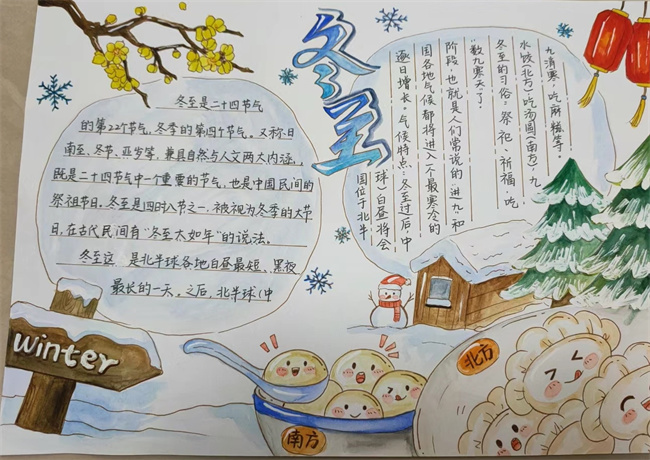 冬至
冬至是二十四节气
的第22个节气,冬季的第四个节气。又称日
南至、冬节、亚岁等,兼具自然与人文两大内涵,
既是二十四节气中一个重要的节气,也是中国民间的
祭祖节日。冬至是四时八节之一,被视为冬季的大节
日,在古代民间有“冬至大如年”的说法。
冬至这 是北半球各地白昼最短、黑夜
最长的一天。之后,北半球(中
国位于北半
球)白昼将会
逐日增长。气候特点:冬至过后,中
国各地气候都将进入一个最寒冷的
阶段,也就是人们常说的“进九”和
“数九寒天”了。
冬至的习俗:祭祀、祈福,吃
水饺(北方)吃汤圆(南方),九
九消寒,吃麻糍等
Winter
南方
北方